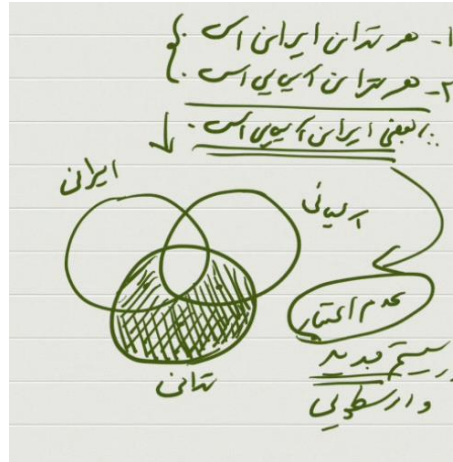 ۱- هر تهرانی ایرانی است
۲- هر تهرانی آسیایی است.
∴ بعضی ایرانی آسیایی است.
ایرانی
آسیائی
عدم اعتبار
تهرانی
سیستم جدید
و ارسطویی